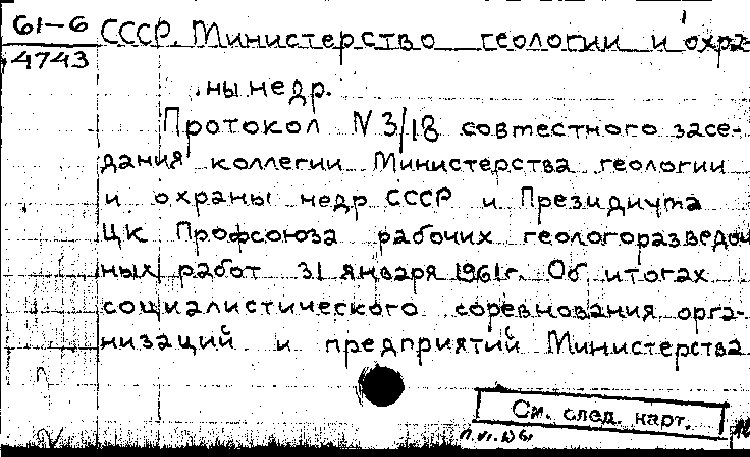 61-6 СССР. Министерство геологии и охра-
4743
ны недр.
Протокол N 3/18 совместного засе-
дания коллегии Министерства геологии
и охраны недр СССР и Президиума
ЦК Профсоюза рабочих геологоразведоч
ных работ 31 января 1961г. Об итогах
социалистического соревнования орга-
низаций и предприятий Министерства
См. след. карт.